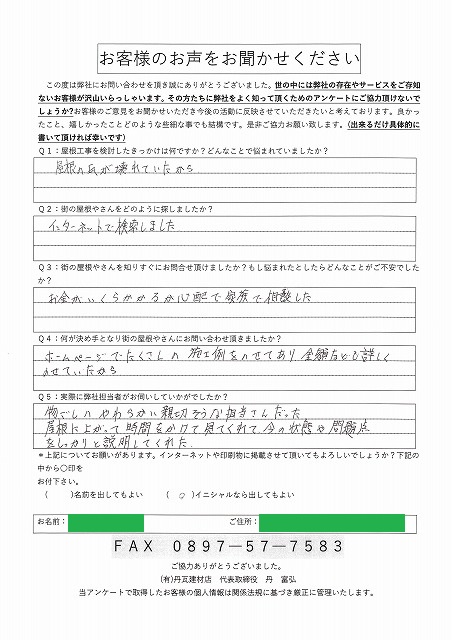 お客様のお声をお聞かせください
この度は弊社にお問い合わせを頂き誠にありがとうございました。世の中には弊社の存在やサービスをご存知
ないお客様が沢山いらっしゃいます。その方たちに弊社をよく知って頂くためのアンケートにご協力頂けないで
しょうか?お客様のご意見をお聞かせいただき今後の活動に反映させていただきたいと考えております。良かっ
たこと、嬉しかったことどのような些細な事でも結構です。是非ご協力お願い致します。(出来るだけ具体的に
書いて頂ければ幸いです)
Q1:屋根工事を検討したきっかけは何ですか?どんなことで悩まれていましたか?
屋根の瓦が壊れていたから
Q2:街の屋根やさんをどのように探しましたか?
インターネットで検索しました
Q3:街の屋根やさんを知りすぐにお問合せ頂けましたか?もし悩まれたとしたらどんなことがご不安でした
か?
お金がいくらかかるか心配で家族で相談した
Q4:何が決め手となり街の屋根やさんにお問い合わせ頂きましたか?
ホームページでたくさんの施工例をのせてあり、金額なども詳しく
のせていたから
Q5:実際に弊社担当者がお伺いしていかがでしたか?
物ごしのやわらかい親切そうな担当さんだった
屋根に上がって時間をかけて見てくれて、今の状態や問題点
をしっかりと説明してくれた
*上記についてお願いがあります。インターネットや印刷物に掲載させて頂いてもよろしいでしょうか?下記の
中から〇印を
お付下さい。
( )名前を出してもよい ( ○ )イニシャルなら出してもよい
お名前: ご住所:
FAX 0897-57-7583
ご協力ありがとうございました。
(有)丹瓦建材店 代表取締役 丹 富弘
当アンケートで取得したお客様の個人情報は関係法規に基づき厳正に管理いたします。